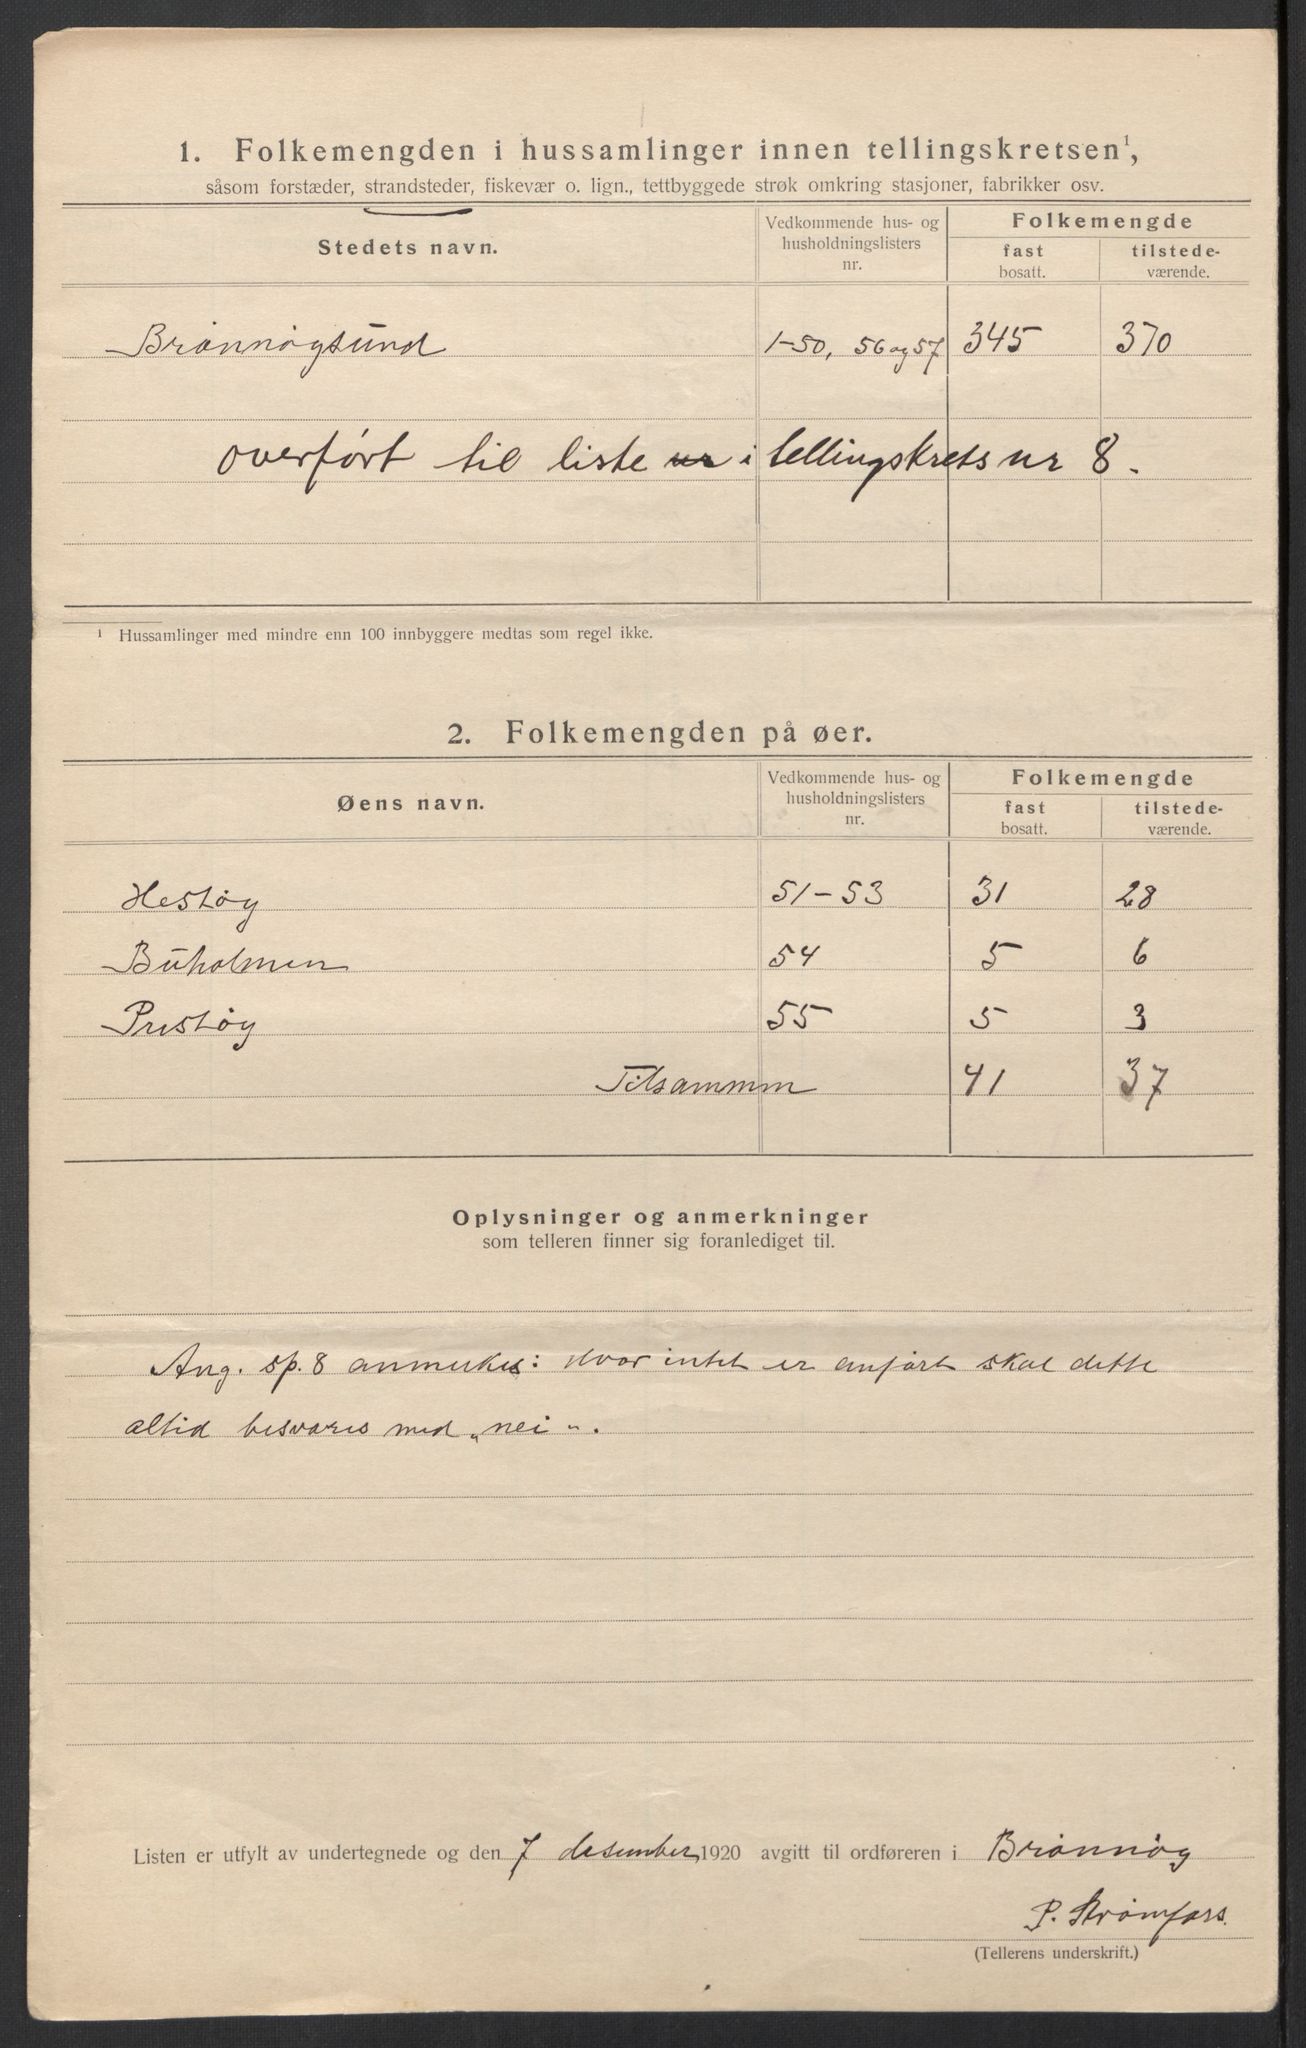 1. Folkemengden i hussamlinger innen tellingskretsen¹,
såsom forstæder, strandsteder, fiskevær o. lign., tettbyggede strøk omkring stasjoner, fabrikker osv.
Stedets navn.
Vedkommende hus- og
husholdningslisters
nr.
Folkemengde
fast
bosatt.
tilstede-
værende.
Brønnøysund 1-50, 56 og 57 345 370
overført til liste nr i tellingskrets nr 8.
¹ Hussamlinger med mindre enn 100 innbyggere medtas som regel ikke.
2. Folkemengden på øer.
Øens navn.
Vedkommende hus- og
husholdningslisters
nr.
Folkemengde
fast
bosatt.
tilstede-
værende.
Hestøy 51-53 31 28
Buholmen 54 5 6
Prestøy 55 5 3
Tilsammen 41 37
Oplysninger og anmerkninger
som telleren finner sig foranlediget til.
Ang. sp. 8 anmerkes: Hvor intet er anført skal dette
altid besvares med „nei“.
Listen er utfylt av undertegnede og den 7 desember 1920 avgitt til ordføreren i Brønnøy
P. Strømfors.
(Tellerens underskrift.)